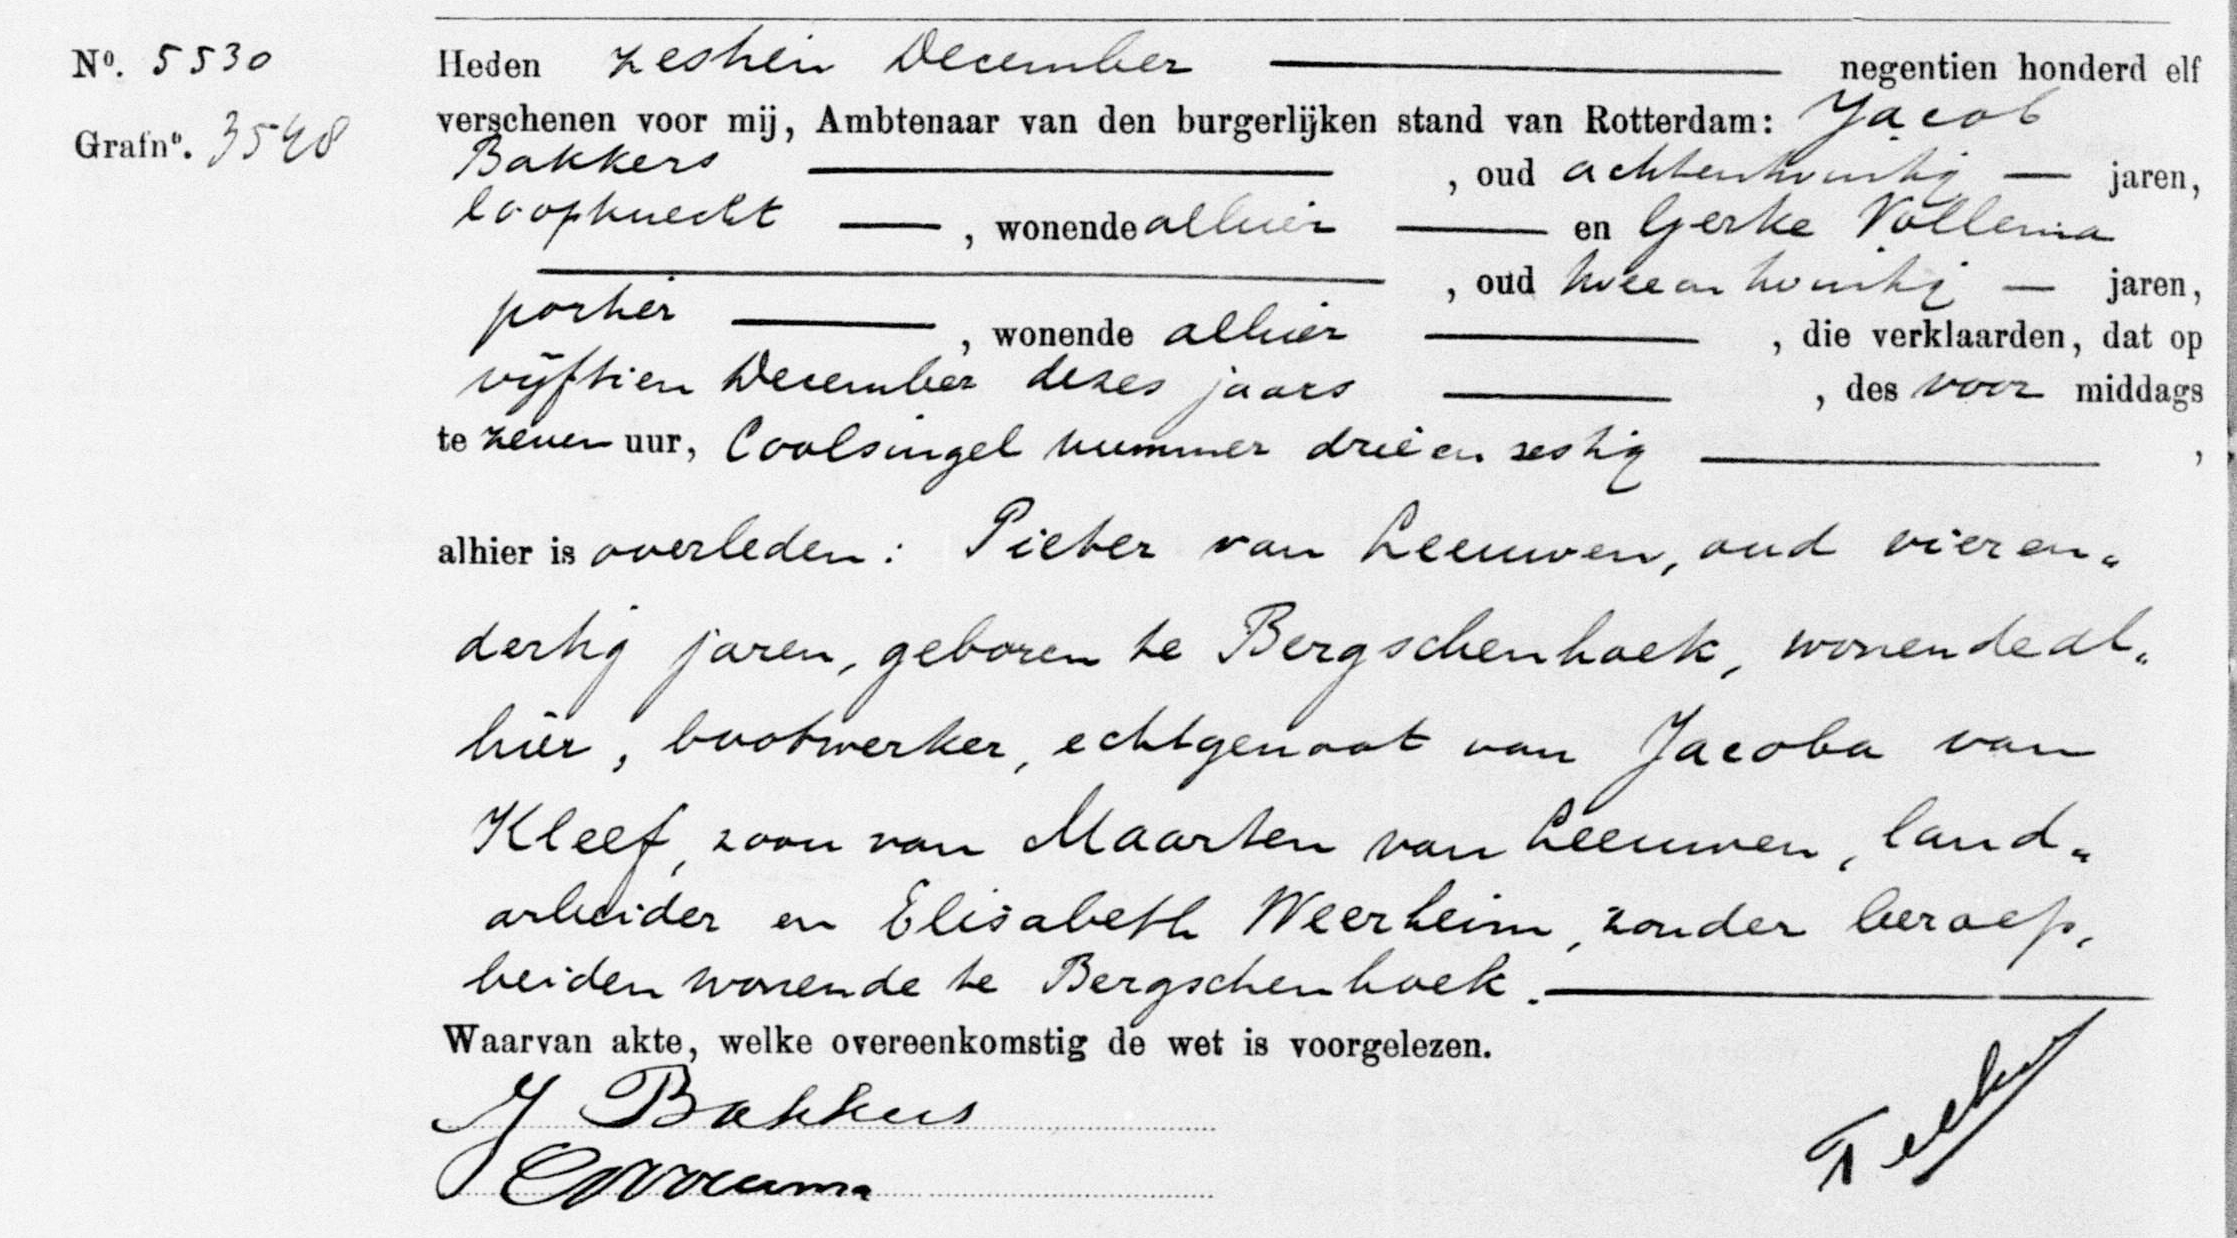 Nº. 5530
Heden zestien December negentien honderd elf
verschenen voor mij, Ambtenaar van den burgerlijken stand van Rotterdam: Jacob
Grafnº. 3548
Bakkers , oud achtentwintig — jaren,
loopknecht — , wonende alhier — en Gerke Vollema
, oud tweeentwintig — jaren,
portier — , wonende alhier — , die verklaarden, dat op
vijftien December dezes jaars — , des voor middags
te zeven uur, Coolsingel nummer drieenzestig — ,
alhier is overleden: Pieter van Leeuwen, oud vieren„
dertig jaren, geboren te Bergschenhoek, wonende al„
hier, bootwerker, echtgenoot van Jacoba van
Kleef, zoon van Maarten van Leeuwen, land„
arbeider en Elisabeth Weerheim, zonder beroep,
beiden wonende te Bergschenhoek. —
Waarvan akte, welke overeenkomstig de wet is voorgelezen.
J Bakkers